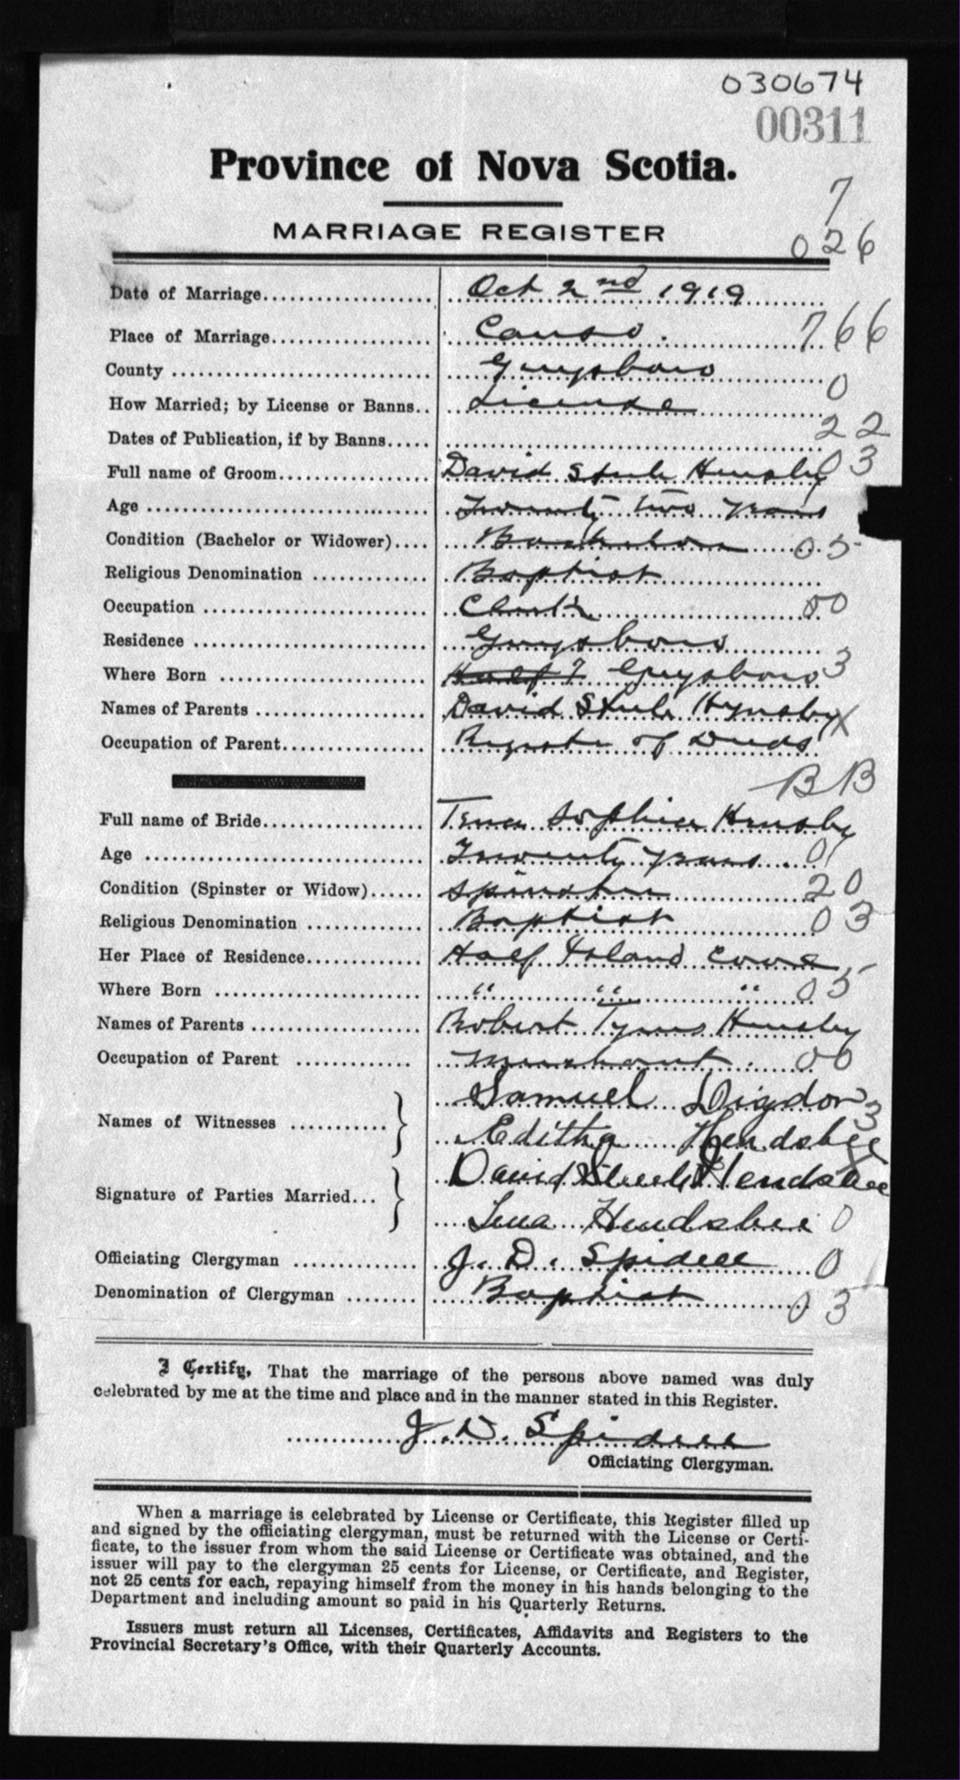 030674
00311
Province of Nova Scotia.
7
MARRIAGE REGISTER
026
Date of Marriage.................... Oct 2nd 1919
Place of Marriage................... Canso. 766
County ............................. Guysboro 0
How Married; by License or Banns.. License
Dates of Publication, if by Banns..... 22
Full name of Groom.................. David Steele Hensby 03
Age ................................ Twenty two years
Condition (Bachelor or Widower).... Bachelor 05
Religious Denomination ............. Baptist
Occupation ......................... Clerk 00
Residence .......................... Guysboro
Where Born ......................... Guysboro 3
Names of Parents ................... David Steele Hynsby X
Occupation of Parent................ Register of Deeds
BB
Full name of Bride.................. Tena Sophia Hensby
Age ................................ Twenty years. 01
Condition (Spinster or Widow)...... Spinster 20
Religious Denomination ............. Baptist 03
Her Place of Residence............. Half Island Cove
Where Born ......................... " " " 05
Names of Parents ................... Robert Hensby
Occupation of Parent ............. Merchant. 00
Names of Witnesses ........... } Samuel Digdon 3
Editha Hendsbee
Signature of Parties Married... } David Steele Hendsbee
Tena Hendsbee 0
Officiating Clergyman .............. J. D. Spidell 0
Denomination of Clergyman ........ Baptist 03
I Certify, That the marriage of the persons above named was duly
celebrated by me at the time and place and in the manner stated in this Register.
J. D. Spidell
Officiating Clergyman.
When a marriage is celebrated by License or Certificate, this Register filled up
and signed by the officiating clergyman, must be returned with the License or Certi-
ficate, to the issuer from whom the said License or Certificate was obtained, and the
issuer will pay to the clergyman 25 cents for License, or Certificate, and Register,
not 25 cents for each, repaying himself from the money in his hands belonging to the
Department and including amount so paid in his Quarterly Returns.
Issuers must return all Licenses, Certificates, Affidavits and Registers to the
Provincial Secretary's Office, with their Quarterly Accounts.